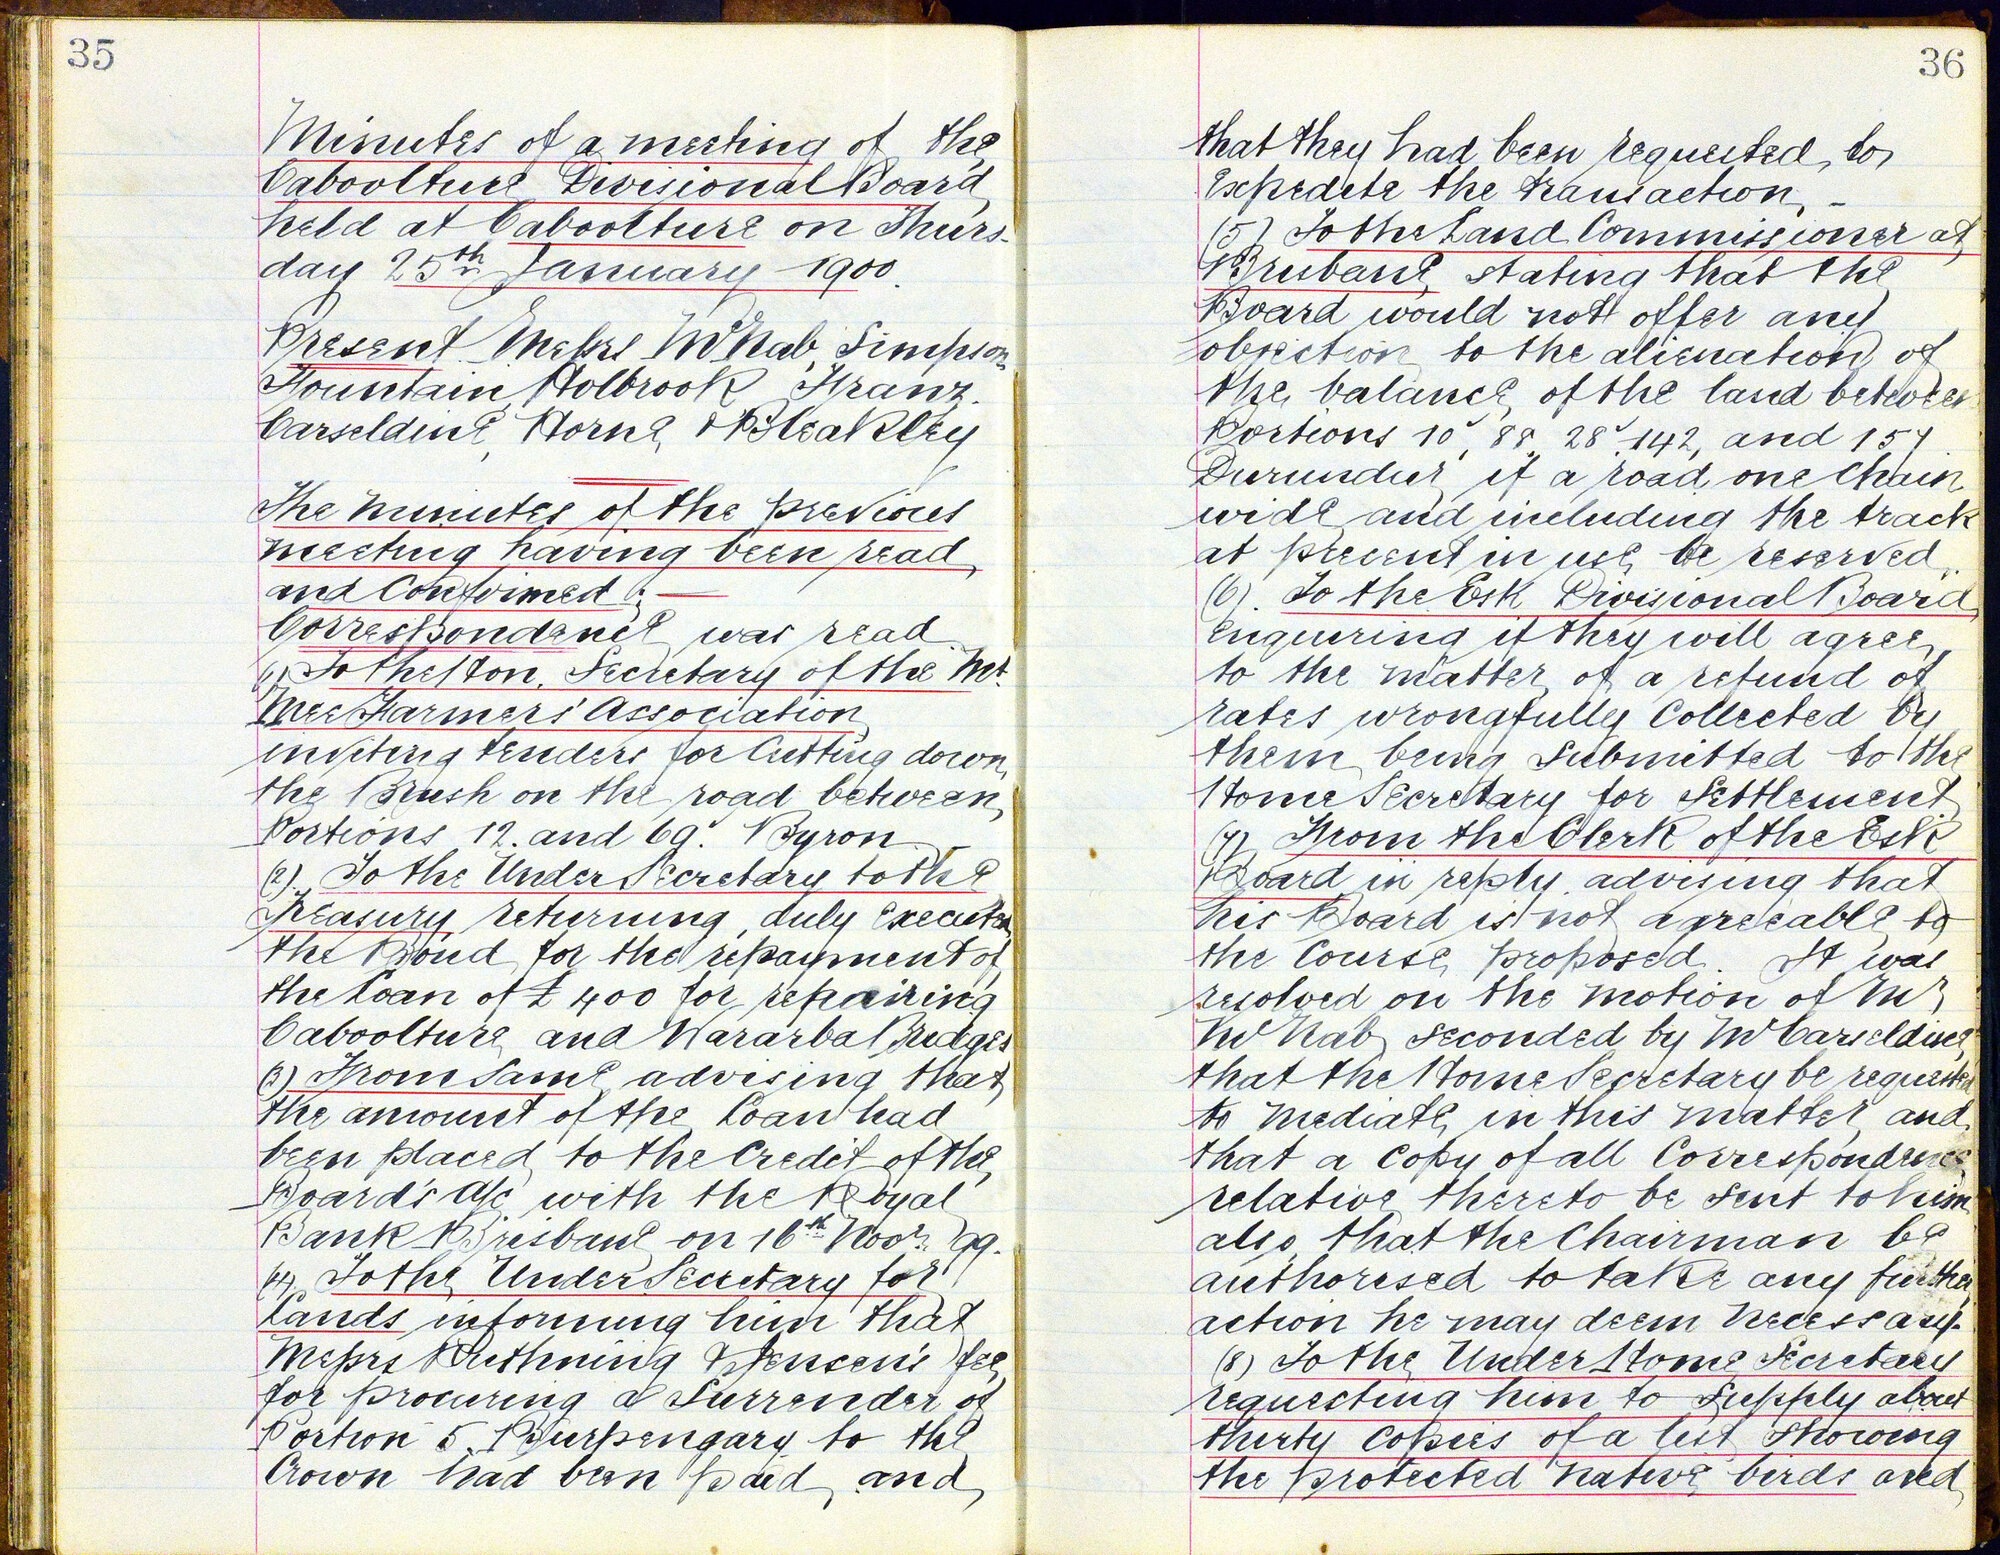 35
Minutes of a meeting of the
Caboolture Divisional Board
held at Caboolture on Thurs-
day 25th January 1900.
Present Messrs McNab, Simpson
Fountain, Holbrook, Franz.
Carseldine, Horne, & Bleakley
The minutes of the previous
meeting having been read
and Confirmed :—
Correspondence was read
(1) To the Hon. Secretary of the Mt.
Mee Farmers' Association
inviting tenders for Cutting down
the Brush on the road between
Portions 12. and 69. Byron. -
(2). To the Under Secretary to the
Treasury returning, duly executed
the Bond for the repayment of
the Loan of £400 for repairing
Caboolture and Wararba Bridges
(3) From Same advising that
the amount of the Loan had
been placed to the Credit of the
Board's a/c with the Royal
Bank Brisbane on 16th Novr. 99.
(4) To the Under Secretary for
Lands informing him that
Messrs Ruthning & Jensen's fee
for procuring a Surrender of
Portion 5. Burpengary to the
Crown had been paid, and
36
that they had been requested to
expedite the transaction. -
(5) To the Land Commissioner at
Brisbane, stating that the
Board would not offer any
objection to the alienation of
the balance of the land between
Portions 10, 88, 28, 142, and 157
Durundur if a road one Chain
wide and including the track
at present in use be reserved.
(6). To the Esk Divisional Board
enquiring if they will agree
to the matter of a refund of
rates wrongfully Collected by
them being Submitted to the
Home Secretary for Settlement
(7) From the Clerk of the Esk
Board in reply advising that
his Board is not agreeable to
the Course proposed. It was
resolved on the motion of Mr
McNab seconded by Mr Carseldine
that the Home Secretary be requested
to mediate in this matter and
that a Copy of all Correspondence
relative thereto be sent to him
also that the Chairman be
authorised to take any further
action he may deem necessary.
(8) To the Under Home Secretary
requesting him to Supply about
thirty Copies of a list showing
the protected native birds and